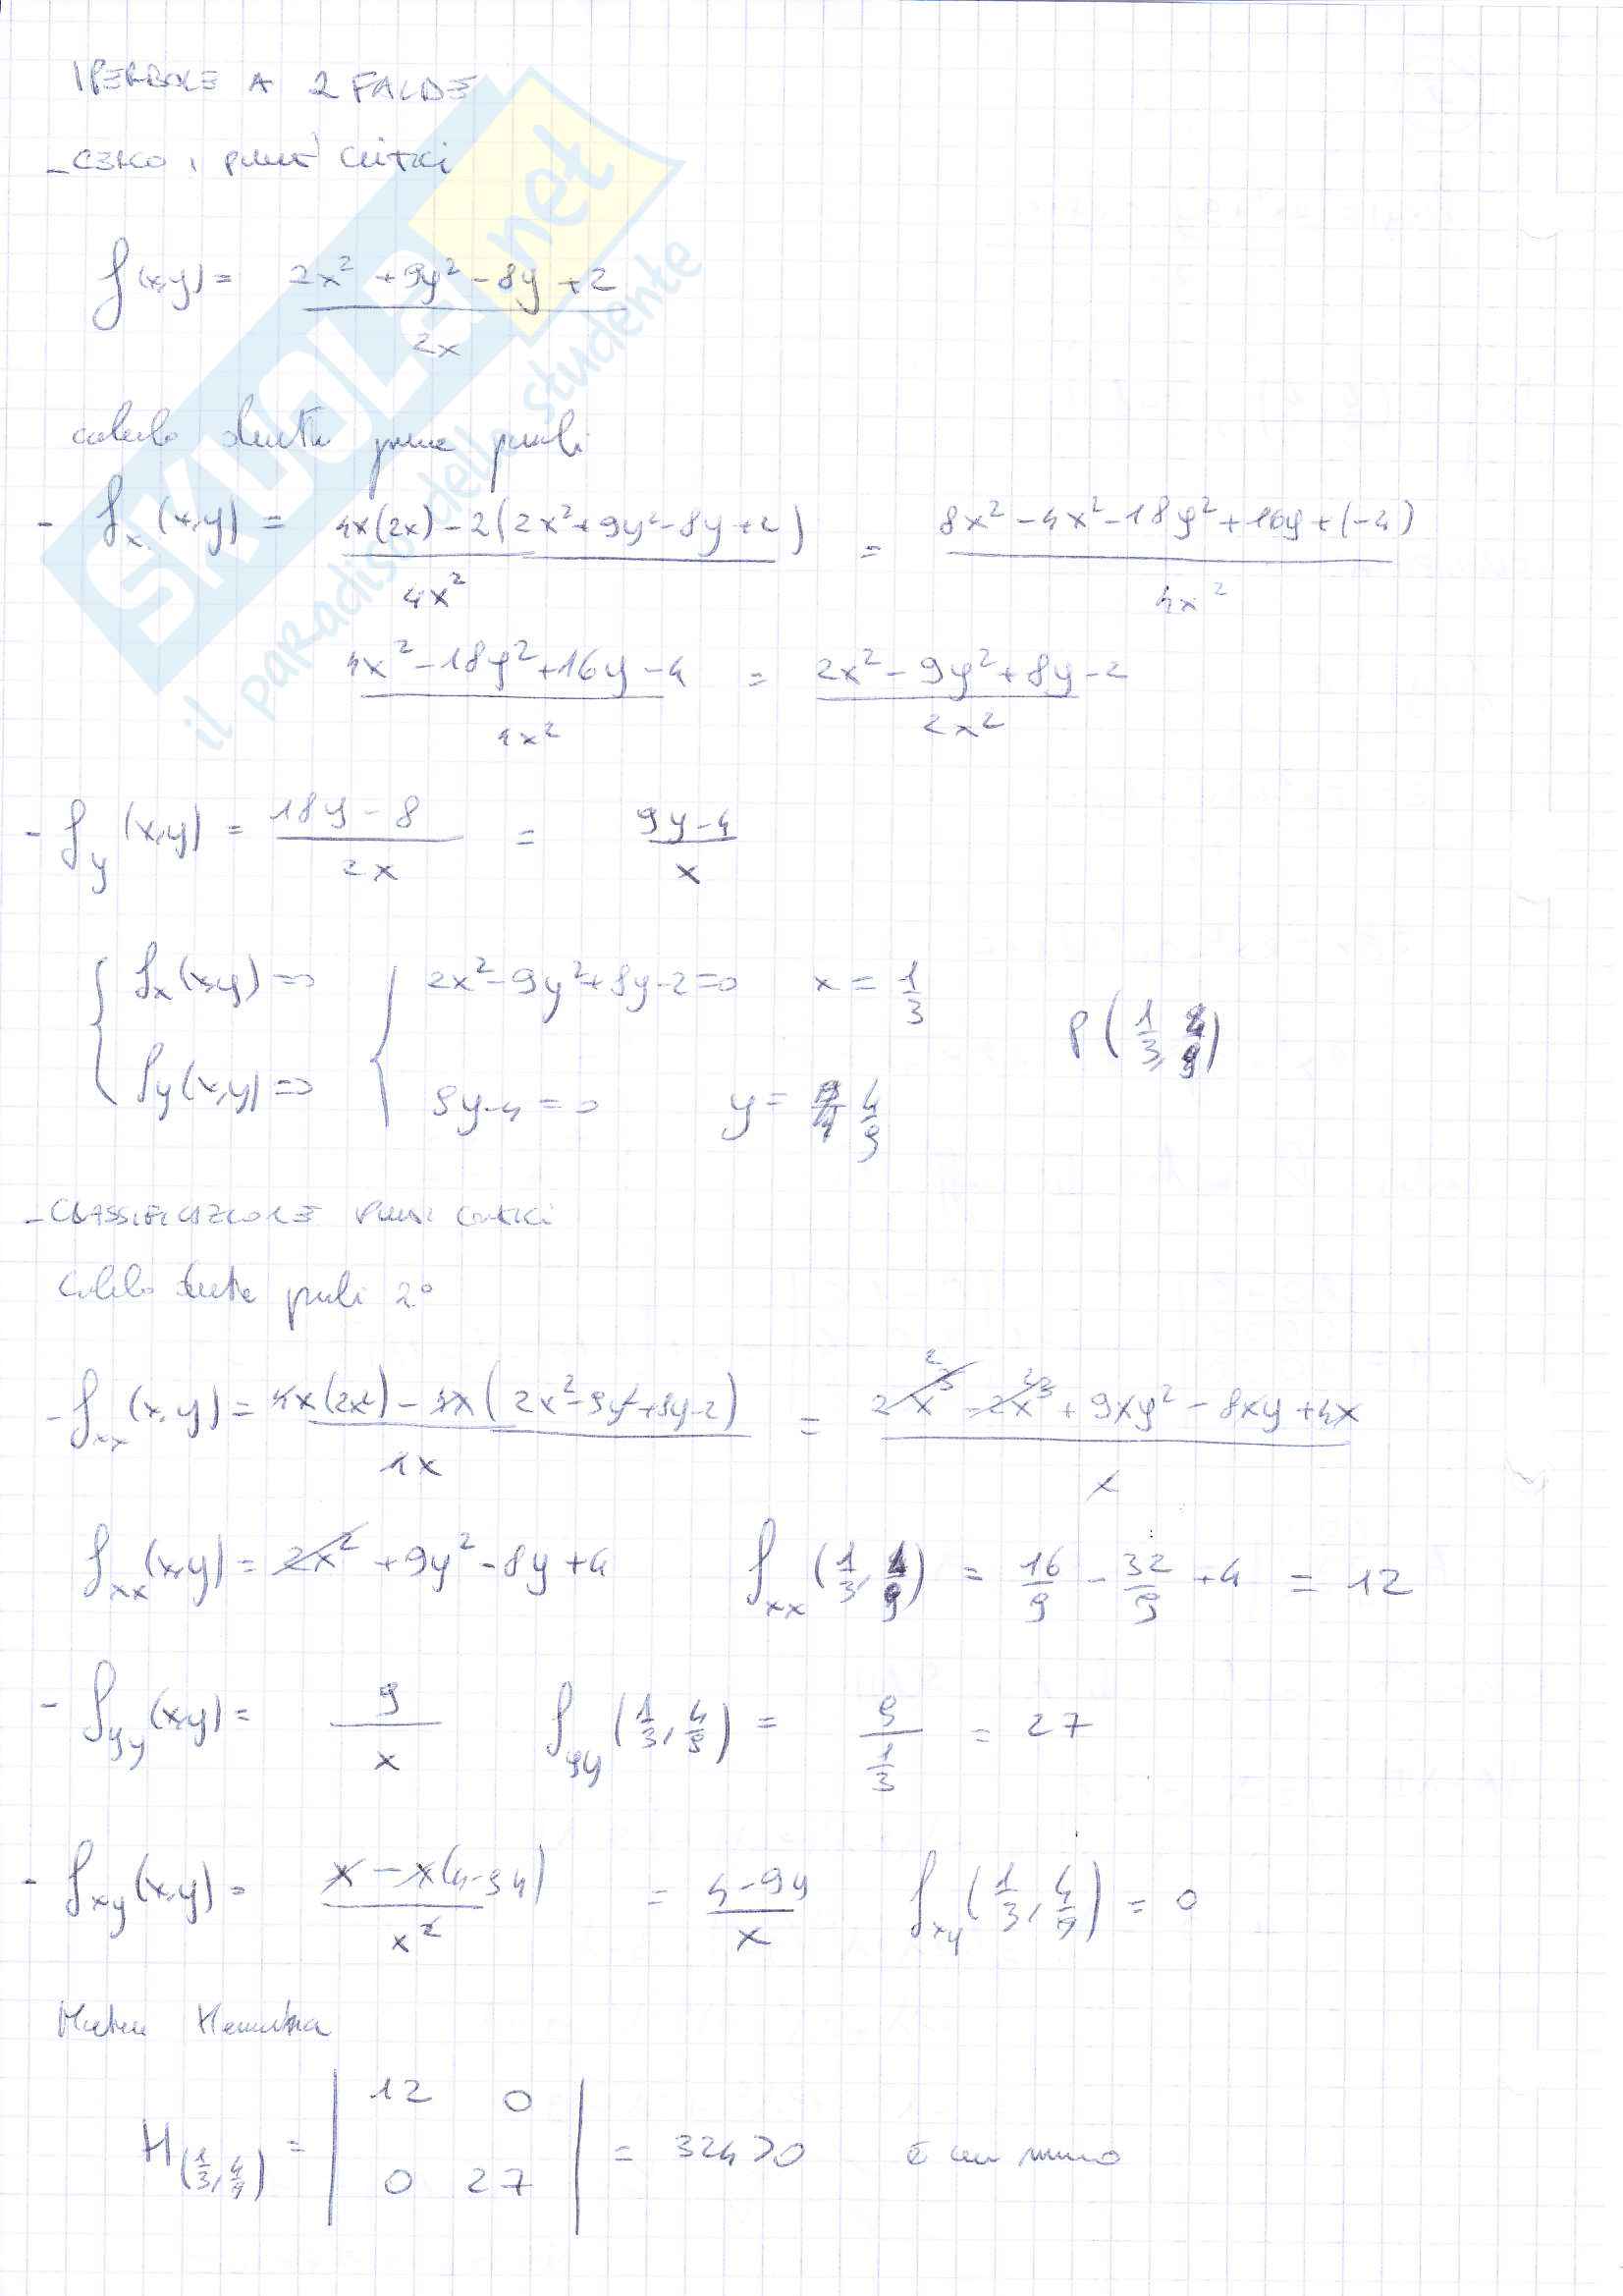 IPERBOLE A 2 FALDE
- CERCO i punti critici
f(x,y) = (2x² + 9y² - 8y + 2) / 2x
calcolo derivate prime parziali
- fx (x,y) = (4x(2x) - 2(2x² + 9y² - 8y + 2)) / 4x² = (8x² - 4x² - 18y² + 16y + (-4)) / 4x²
(4x² - 18y² + 16y - 4) / 4x² = (2x² - 9y² + 8y - 2) / 2x²
- fy (x,y) = (18y - 8) / 2x = (9y - 4) / x
{ fx(x,y) = 0 { 2x² - 9y² + 8y - 2 = 0 x = 1/3
P(1/3, 4/9)
fy(x,y) = 0 9y - 4 = 0 y = 4/9
- CLASSIFICAZIONE PUNTI CRITICI
Calcolo derivate parziali 2°
- fxx (x,y) = (4x(2x²) - 4x(2x² - 9y² + 8y - 2)) / 4x = (2x³ - 2x³ + 9xy² - 8xy + 4x) / x
fxx(x,y) = 2x² + 9y² - 8y + 4 fxx(1/3, 4/9) = 16/9 - 32/9 + 4 = 12
- fyy(x,y) = 9/x fyy(1/3, 4/9) = 9 / (1/3) = 27
- fxy(x,y) = (x - x(4 - 9y)) / x² = (4 - 9y) / x fxy(1/3, 4/9) = 0
Matrice Hessiana
H(1/3, 4/9) = | 12 0 | = 324 > 0 è un minimo
| 0 27 |
SKUOLA.net
il paradiso dello studente